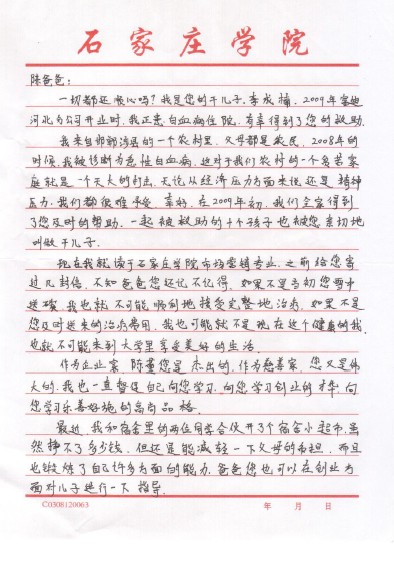 石家庄学院
陈爸爸：
一切都还顺心吗？我是您的干儿子，李成楠，2009年您进
河北分公司开业时，我正患白血病住院，有幸得到了您的救助.
我来自邯郸涉县的一个农村里，父母都是农民，2008年的
时候，我被诊断为急性白血病，这对于我们农村的一个名若家
庭就是一个天大的打击，无论从经济压力方面来说还是精神
压力，我们都很难承受，幸好，在2009年初，我们全家得到
了您及时的帮助，一起被救助的十个孩子也被您亲切地
叫做干儿子.
现在我就读于石家庄学院市场营销专业，之前给您寄
过几封信，不知爸爸您还记不记得，如果不是当初您雪中
送碳，我也就不可能顺利地接受完整地治疗，如果不是
您及时送来的治疗费用，我也可能就不是现在这个健康的我，
也就不可能来到大学里享受美好的生活.
作为企业家，陈董您是杰出的，作为慈善家，您又是伟
大的，我也一直督促自己向您学习，向您学习创业的才华，向
您学习乐善好施的高尚品格.
最近，我和宿舍里的两位同学合伙开了个宿舍小超市，虽
然挣不了多少钱，但还是能减轻一下父母的负担，而且
也锻炼了自己许多方面的能力，爸爸您也可以在创业方
面对儿子进行一下指导.
C0308120063 年 月 日